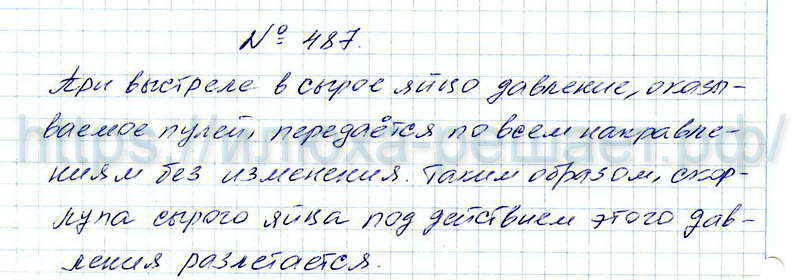 № 487.
При выстреле в сырое яйцо давление, оказы-
ваемое пулей, передаётся по всем направле-
ниям без изменения. Таким образом, скор-
лупа сырого яйца под действием этого дав-
ления разлетается.